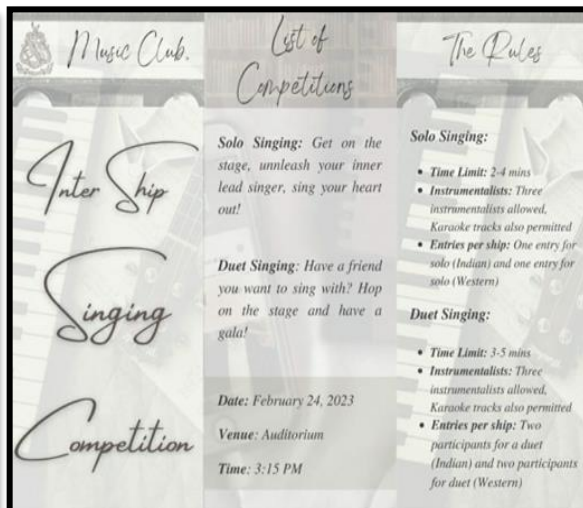 Music Club.
Inter Ship
Singing
Competition
List of
Competitions
Solo Singing: Get on the
stage, unnleash your inner
lead singer, sing your heart
out!
Duet Singing: Have a friend
you want to sing with? Hop
on the stage and have a
gala!
Date: February 24, 2023
Venue: Auditorium
Time: 3:15 PM
The Rules
Solo Singing:
• Time Limit: 2-4 mins
• Instrumentalists: Three
instrumentalists allowed,
Karaoke tracks also permitted
• Entries per ship: One entry for
solo (Indian) and one entry for
solo (Western)
Duet Singing:
• Time Limit: 3-5 mins
• Instrumentalists: Three
instrumentalists allowed,
Karaoke tracks also permitted
• Entries per ship: Two
participants for a duet
(Indian) and two participants
for duet (Western)